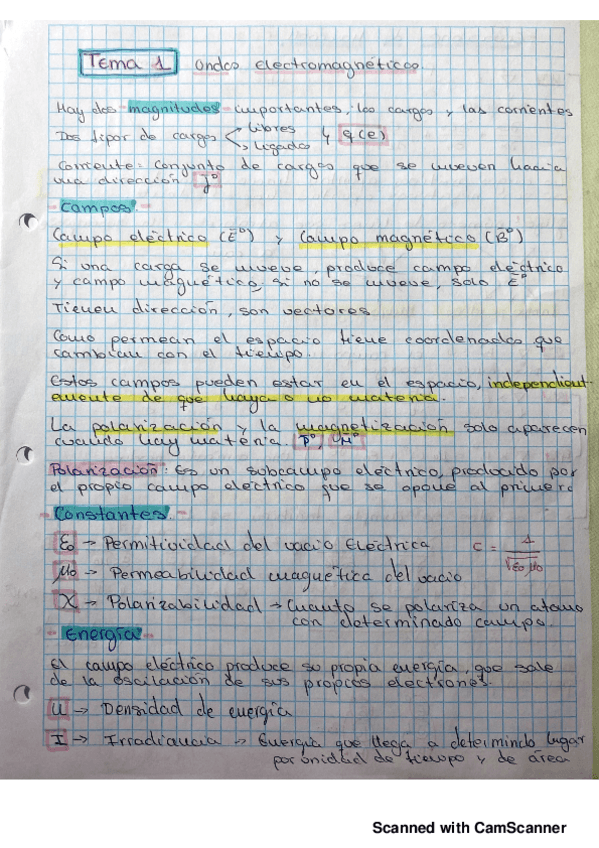 Tema 1 Ondas electromagnéticas.
Hay dos magnitudes importantes, las cargas y las corrientes
Dos tipos de cargas libres y q(e)
ligadas
Corriente: conjunto de cargas que se mueven hacia
una dirección J⁰
Campos:
Campo eléctrico (E⁰) y Campo magnético (B⁰)
Si una carga se mueve, produce campo eléctrico
y campo magnético. si no se mueve, solo E⁰
Tienen dirección, son vectores
Como permean el espacio tiene coordenadas que
cambian con el tiempo.
Estos campos pueden estar en el espacio, independient-
emente de que haya o no materia.
La polarización y la magnetización solo aparecen
cuando hay materia. P⁰, M⁰
Polarización: Es un subcampo eléctrico, producido por
el propio campo eléctrico que se opone al primero
Constantes
ε₀ → Permitividad del vacio Eléctrica c = 1/√ε₀ μ₀
μ₀ → Permeabilidad magnética del vacio
χ → Polarizabilidad → Cuanto se polariza un atomo
con determinado campo.
Energía
El campo eléctrico produce su propia energía, que sale
de la oscilación de sus propios electrones.
U → Densidad de energía
I → Irradiancia → Energía que llega a determindo lugar
por unidad de tiempo y de área
Scanned with CamScanner